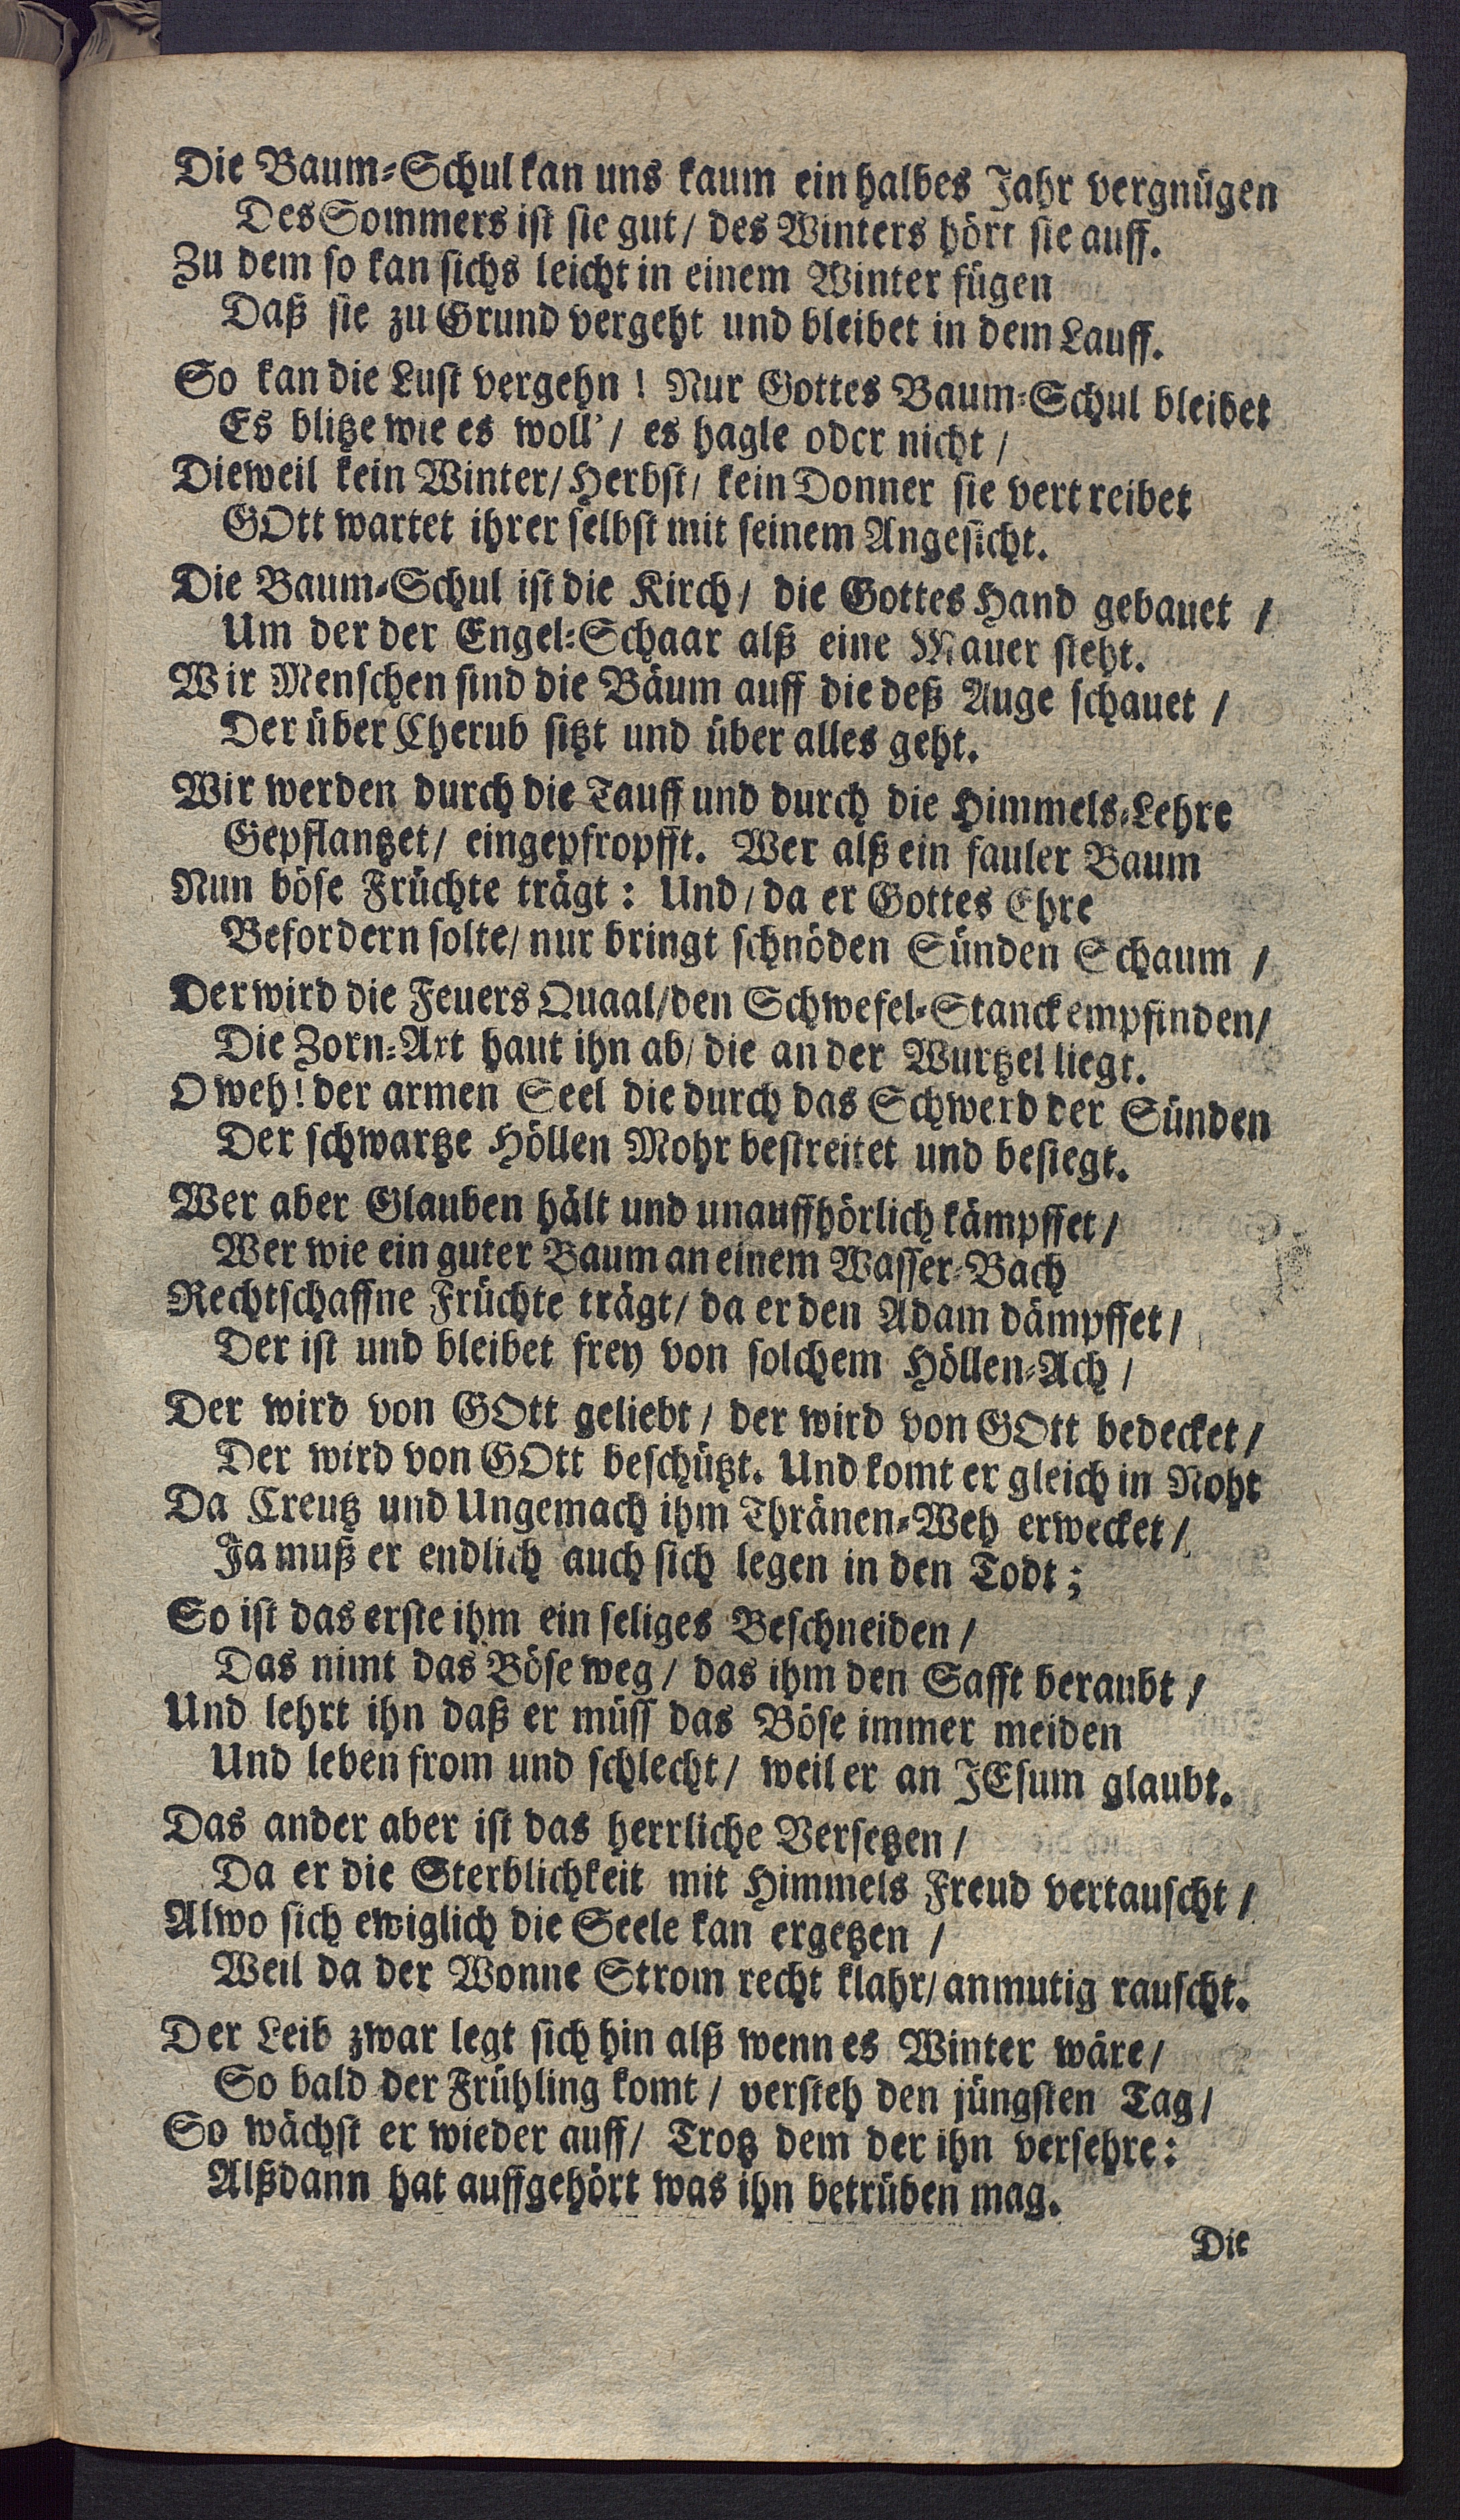 Die Baum-Schul kan uns kaum ein halbes Jahr vergnügen
Des Sommers ist sie gut/ des Winters hört sie auff.
Zu dem so kan sichs leicht in einem Winter fügen
Daß sie zu Grund vergeht und bleibet in dem Lauff.
So kan die Lust vergehn! Nur Gottes Baum-Schul bleibet
Es blitze wie es woll'/ es hagle oder nicht/
Dieweil kein Winter/ Herbst/ kein Donner sie vertreibet
GOtt wartet ihrer selbst mit seinem Angesicht.
Die Baum-Schul ist die Kirch/ die Gottes Hand gebauet /
Um der der Engel-Schaar alß eine Mauer steht.
Wir Menschen sind die Bäum auff die deß Auge schauet /
Der über Cherub sitzt und über alles geht.
Wir werden durch die Tauff und durch die Himmels-Lehre
Gepflantzet/ eingepfropfft. Wer alß ein fauler Baum
Nun böse Früchte trägt: Und/ da er Gottes Ehre
Befordern solte/ nur bringt schnöden Sünden Schaum /
Der wird die Feuers Quaal/ den Schwefel-Stanck empfinden/
Die Zorn-Axt haut ihn ab/ die an der Wurtzel liegt.
O weh! der armen Seel die durch das Schwerd der Sünden
Der schwartze Höllen Mohr bestreitet und besiegt.
Wer aber Glauben hält und unauffhörlich kämpffet/
Wer wie ein guter Baum an einem Wasser-Bach
Rechtschaffne Früchte trägt/ da er den Adam dämpffet/
Der ist und bleibet frey von solchem Höllen-Ach/
Der wird von GOtt geliebt/ der wird von GOtt bedecket/
Der wird von GOtt beschützt. Und komt er gleich in Noht
Da Creutz und Ungemach ihm Thränen-Weh erwecket/
Ja muß er endlich auch sich legen in den Todt;
So ist das erste ihm ein seliges Beschneiden/
Das nimt das Böse weg/ das ihm den Safft beraubt/
Und lehrt ihn daß er müss das Böse immer meiden
Und leben from und schlecht/ weil er an JEsum glaubt.
Das ander aber ist das herrliche Versetzen/
Da er die Sterblichkeit mit Himmels Freud vertauscht/
Alwo sich ewiglich die Seele kan ergetzen /
Weil da der Wonne Strom recht klahr/ anmutig rauscht.
Der Leib zwar legt sich hin alß wenn es Winter wäre/
So bald der Frühling komt/ versteh den jüngsten Tag/
So wächst er wieder auff/ Trotz dem der ihn versehre:
Alßdann hat auffgehört was ihn betrüben mag.
Die